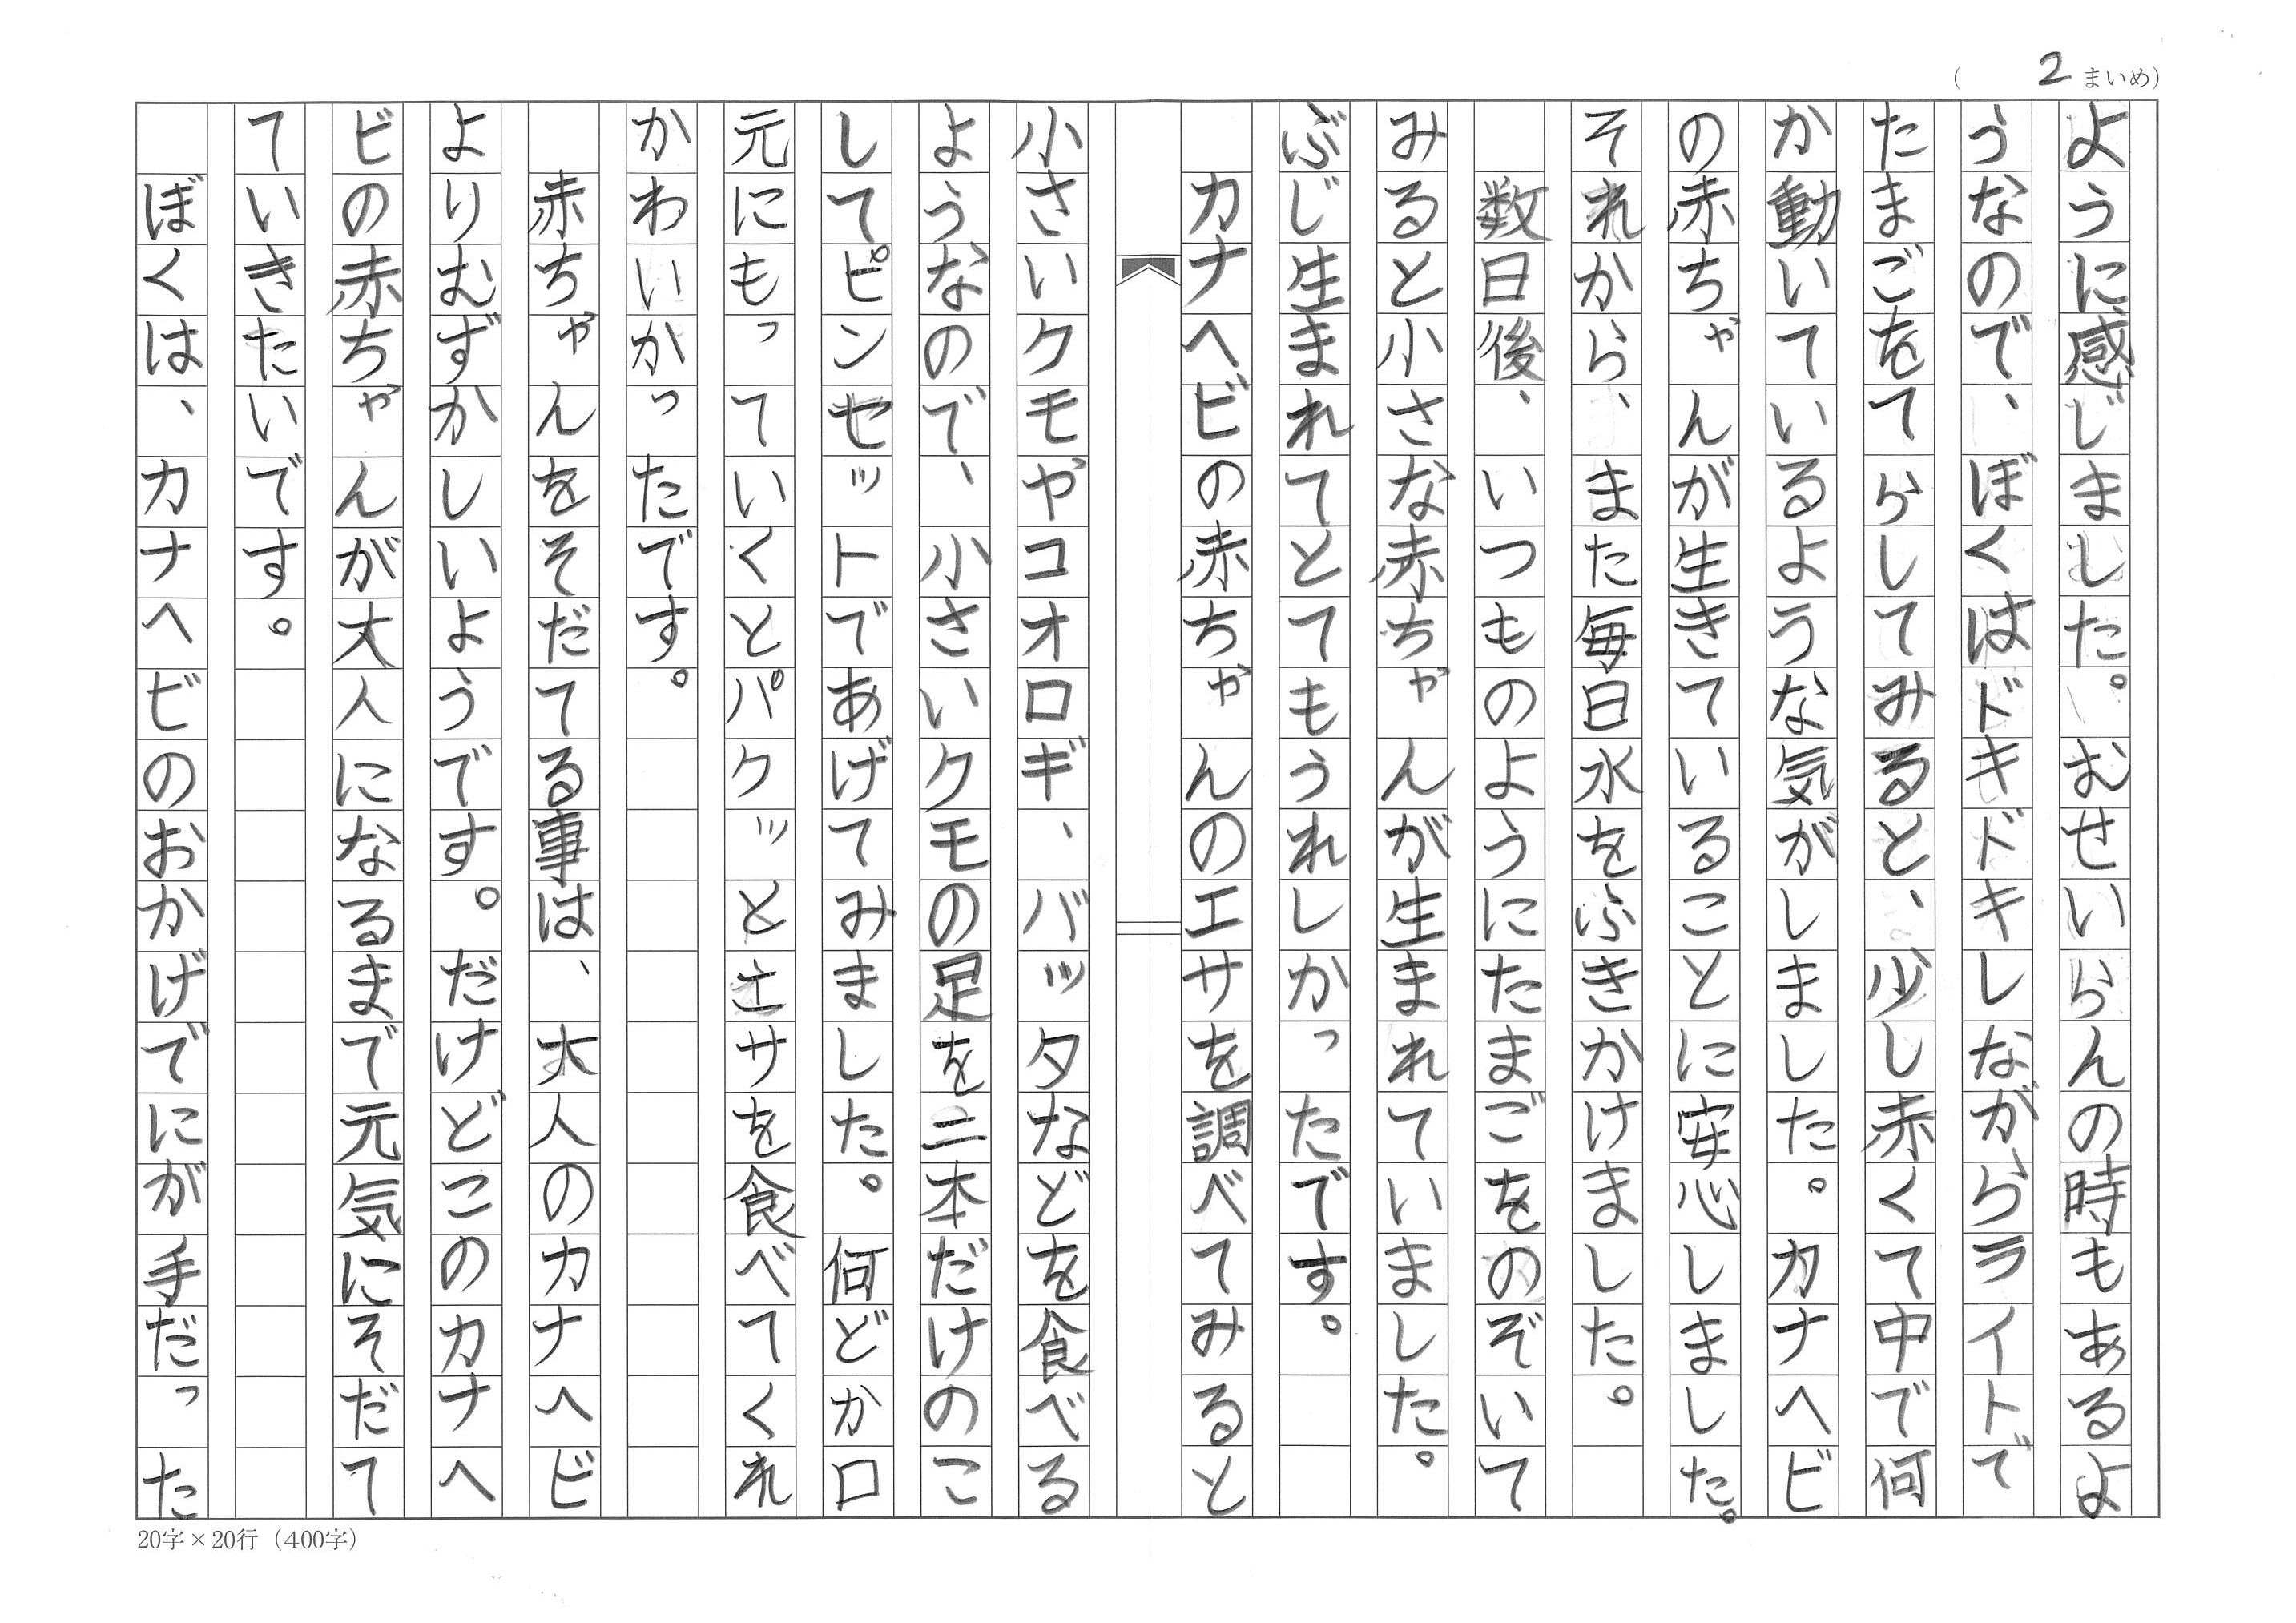 (2まいめ)
ように感じました。むせいらんの時もあるよ
うなので、ぼくはドキドキしながらライトで
たまごをてらしてみると、少し赤くて中で何
か動いているような気がしました。カナヘビ
の赤ちゃんが生きていることに安心しました。
それから、また毎日水をふきかけました。
数日後、いつものようにたまごをのぞいて
みると小さな赤ちゃんが生まれていました。
ぶじ生まれてとてもうれしかったです。
カナヘビの赤ちゃんのエサを調べてみると
小さいクモやコオロギ、バッタなどを食べる
ようなので、小さいクモの足を二本だけのこ
してピンセットであげてみました。何どか口
元にもっていくとパクッとエサを食べてくれ
かわいかったです。
赤ちゃんをそだてる事は、大人のカナヘビ
よりむずかしいようです。だけどこのカナヘ
ビの赤ちゃんが大人になるまで元気にそだて
ていきたいです。
ぼくは、カナヘビのおかげでにが手だった
20字×20行(400字)